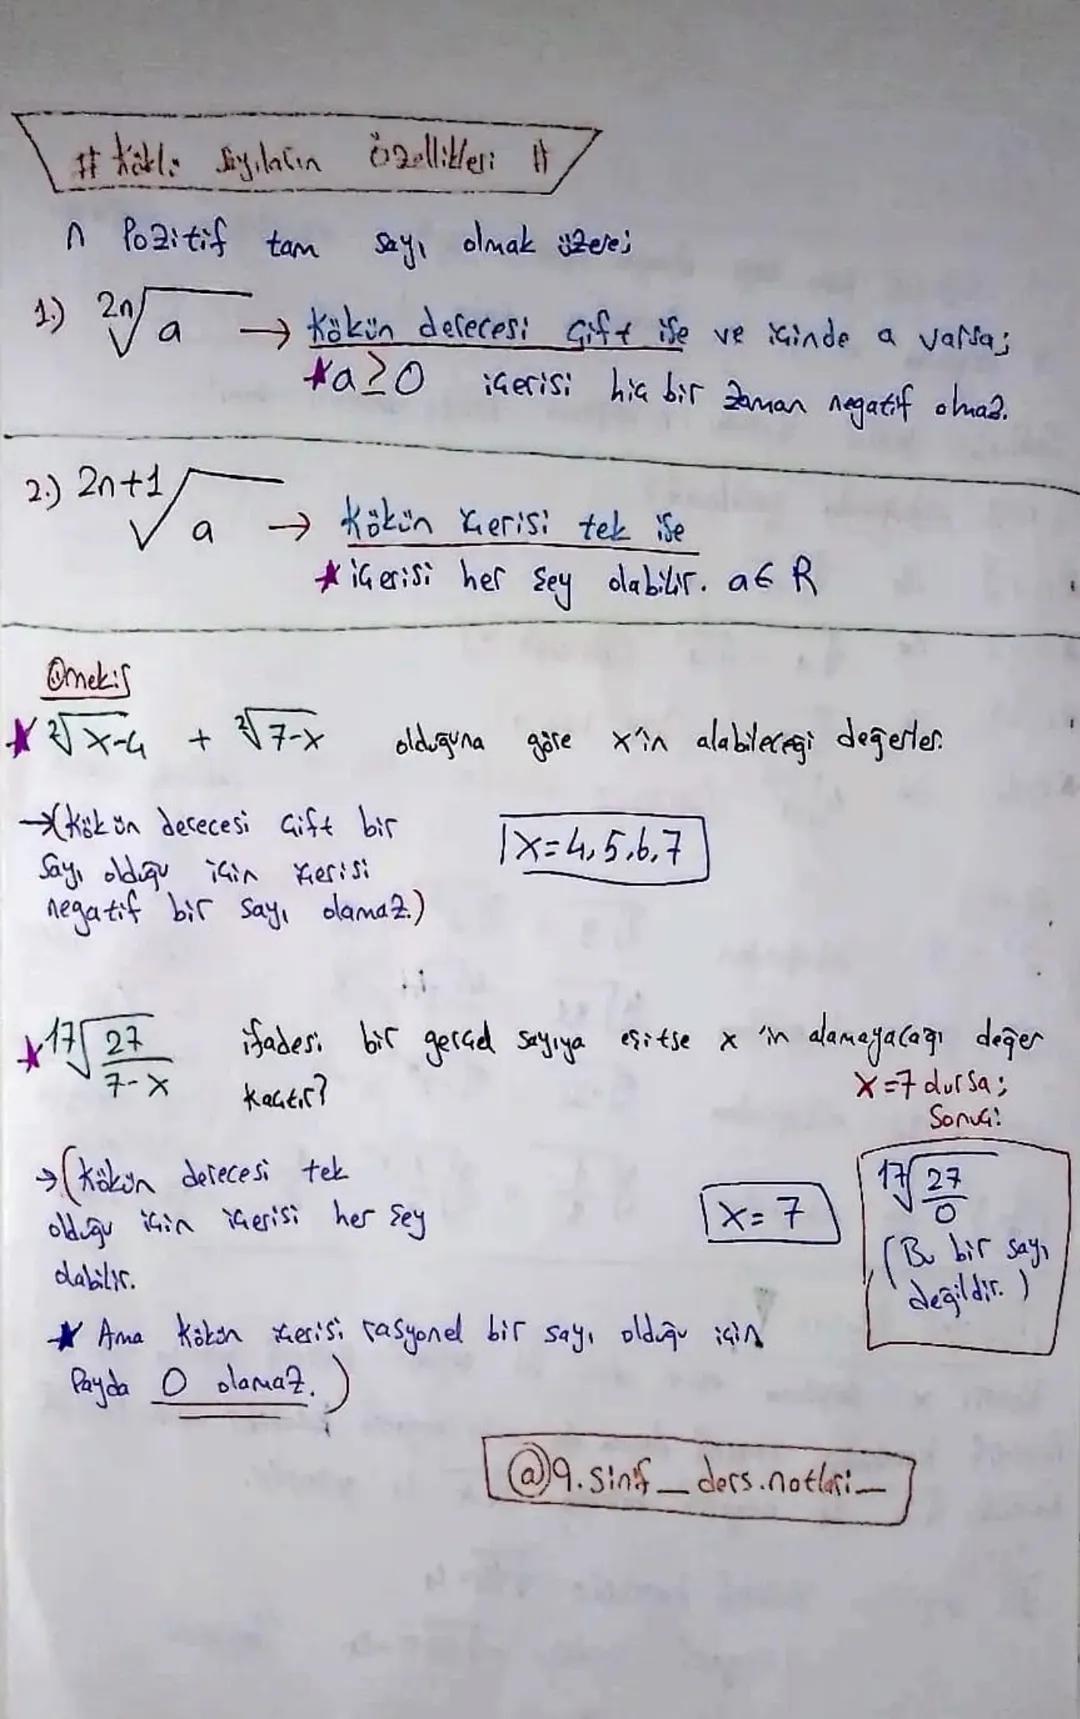 # Köklü Sayıların Özellikleri #
n Pozitif tam sayı olmak üzere;
1.) ²ⁿ√a → Kökün derecesi Çift ise ve içinde a varsa;
★a≥0 içerisi hiç bir zaman negatif olmaz.
2.) ²ⁿ⁺¹√a → Kökün içerisi tek ise
★ içerisi her şey olabilir. a∈R
Örnek;
★ ²√x-4 + ²√7-x olduğuna göre x'in alabileceği değerler.
→(Kökün derecesi çift bir
sayı olduğu için içerisi
negatif bir sayı olamaz.)
x=4,5,6,7
★ ¹⁷√27/7-x ifadesi bir gerçel sayıya eşitse x'in alamayacağı değer
kaçtır?
x=7 dursa;
Sonuç:
→(Kökün derecesi tek
olduğu için içerisi her şey
olabilir.
x=7
¹⁷√27/0
(Bu bir sayı
değildir.)
★ Ama Kökün içerisi rasyonel bir sayı olduğu için
Payda 0 olamaz.)
@9.sinif_ders.notlari_